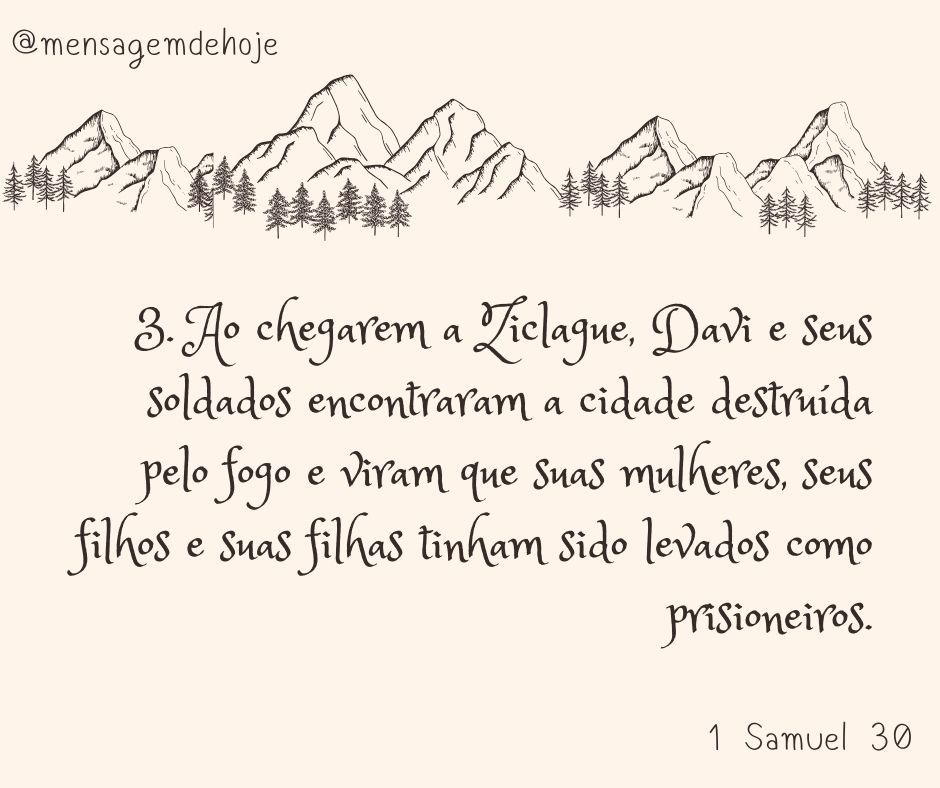 @mensagemdehoje
3. Ao chegarem a Ziclague, Davi e seus
soldados encontraram a cidade destruída
pelo fogo e viram que suas mulheres, seus
filhos e suas filhas tinham sido levados como
prisioneiros.
1 Samuel 30